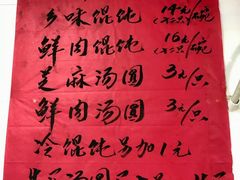 乡味馄饨 14元/碗(大12只)
鲜肉馄饨 16元/碗(大12只)
芝麻汤圆 3元/只
鲜肉汤圆 3元/只
冷馄饨另加1元